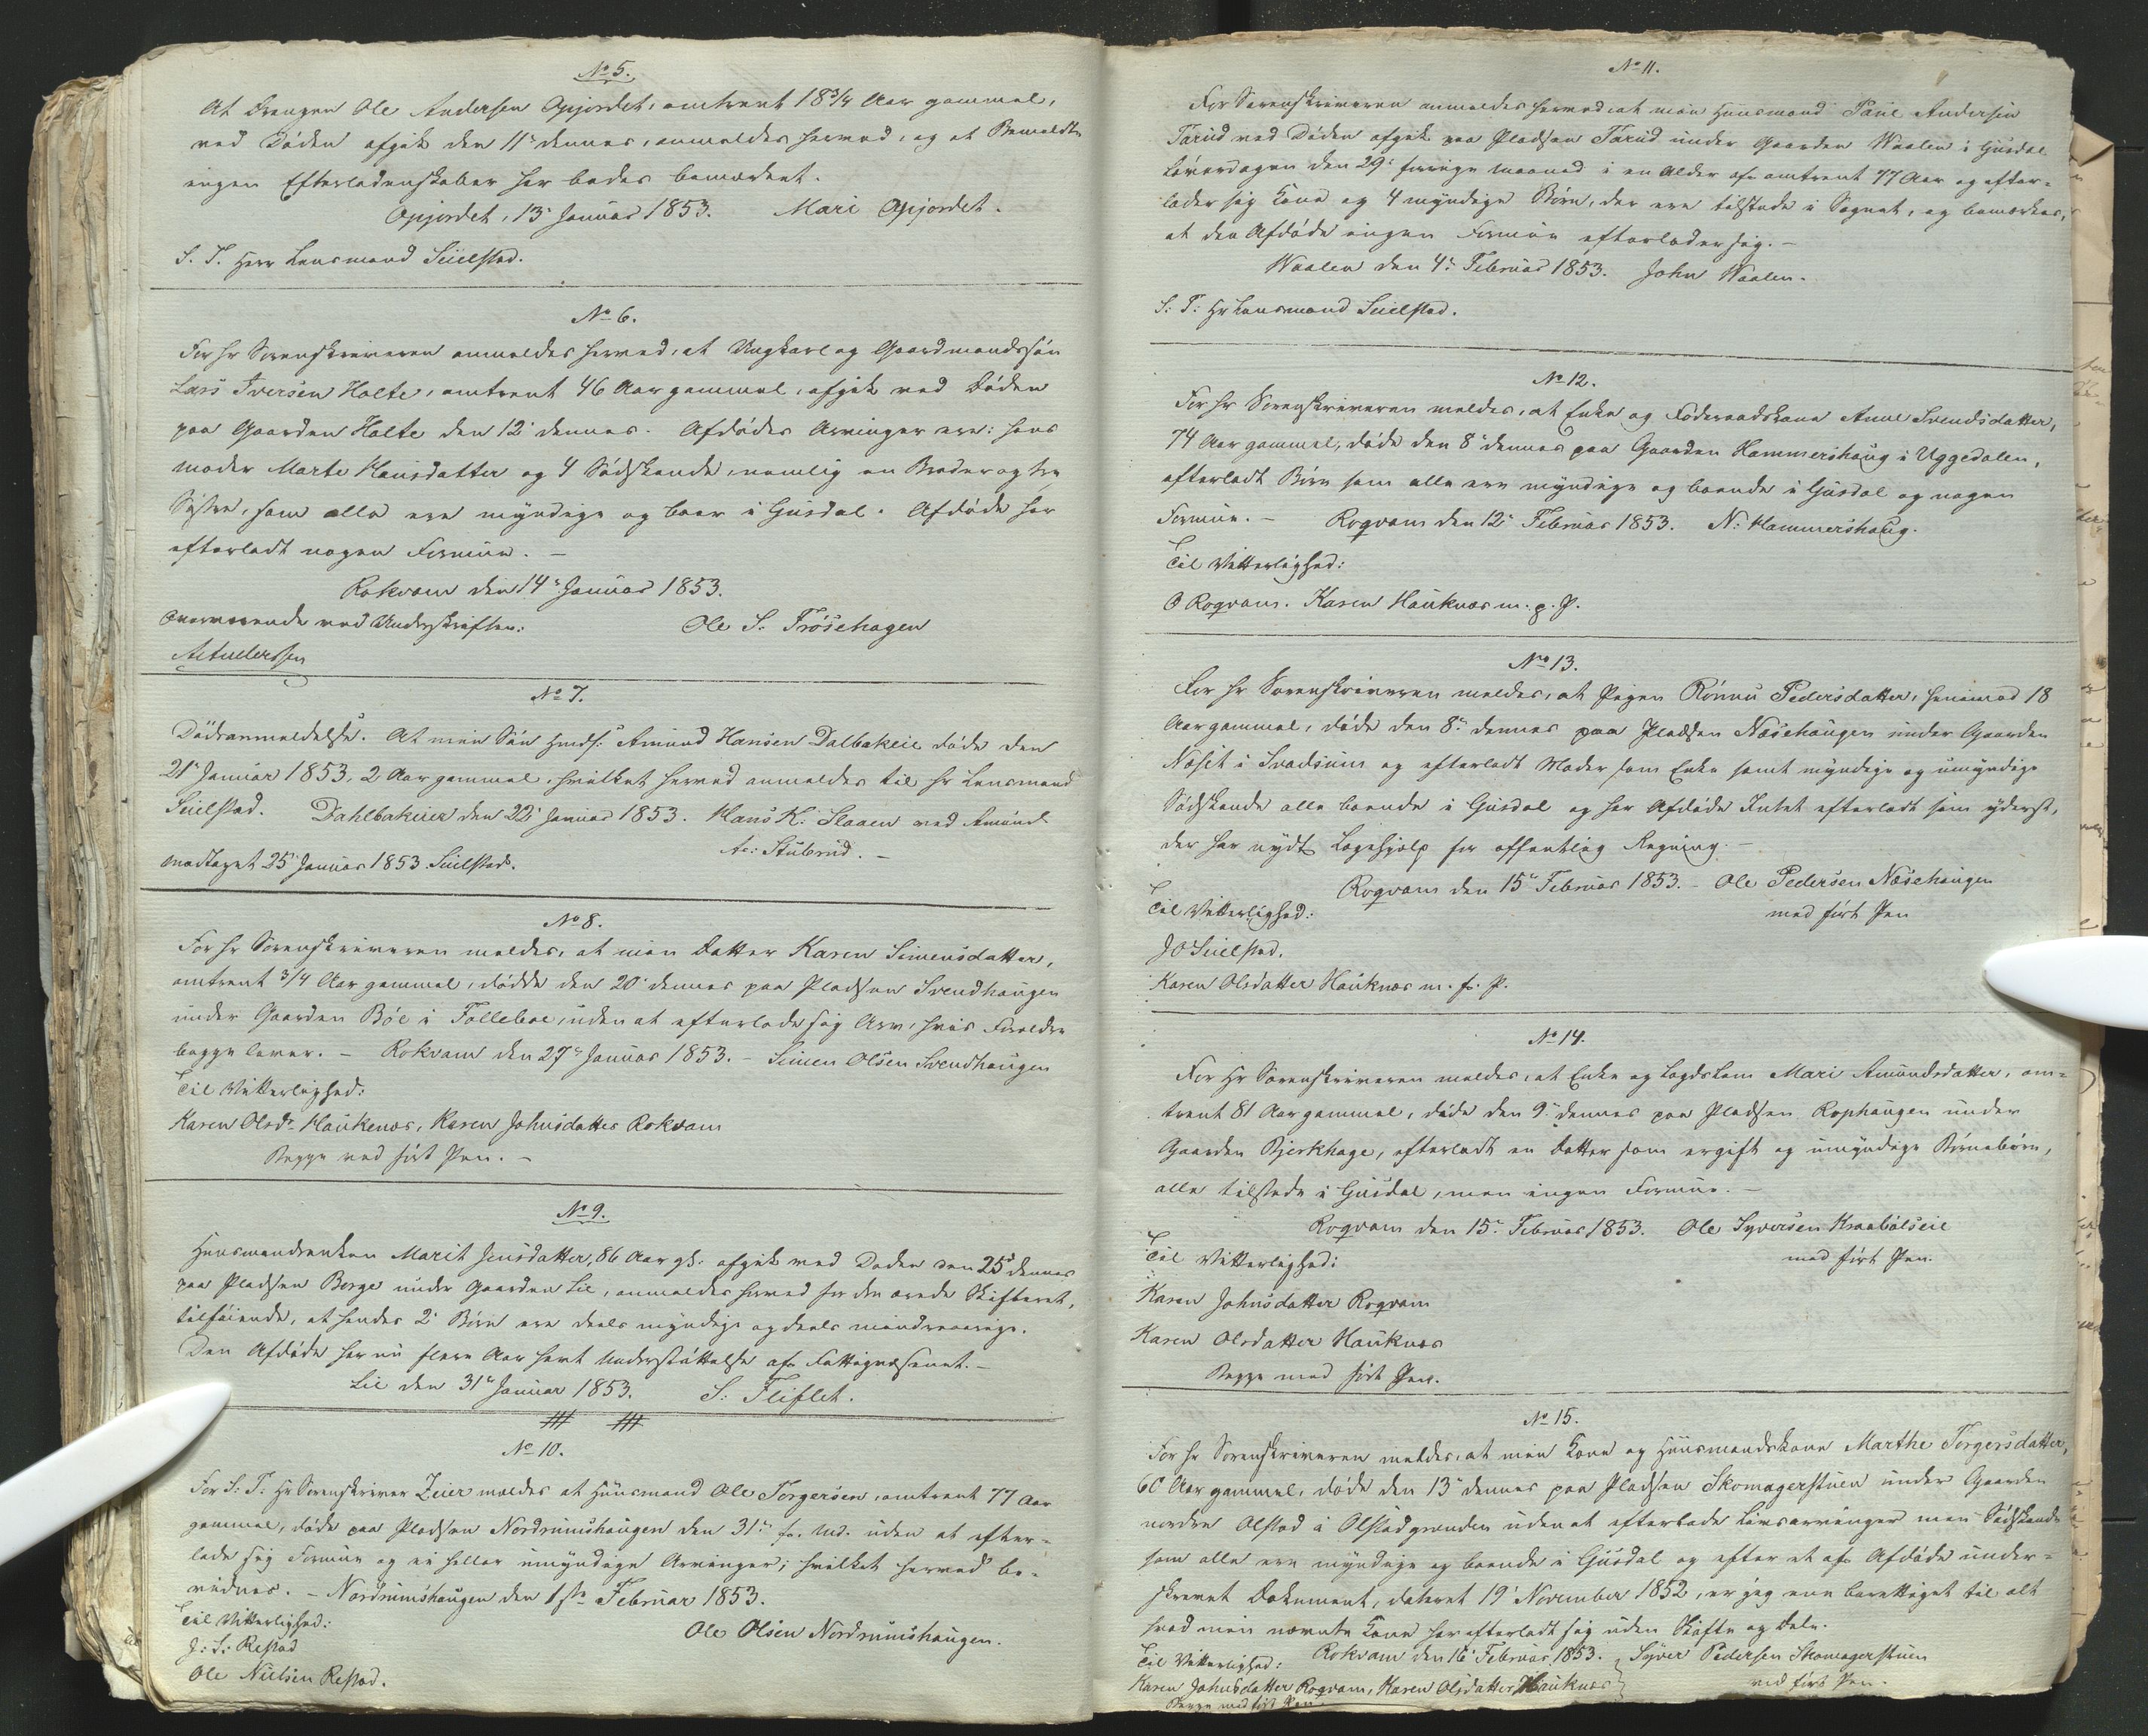 No 5.
At Drengen Ole Andersen Opjordet, omtrent 18 3/4 Aar gammel,
ved Döden afgik den 11' dennes, anmeldes herved, og at Bemeldte
ingen Efterladenskaber har bedes bemærket.
Opjordet, 13' Januar 1853. Mari Opjordet.
S. T. Herr Lensmand Seielstad.
No 6.
For Hr Sorenskriveren anmeldes herved, at Ungkarl og Gaardmandssön
Lars Iversen Holte, omtrent 46 Aar gammel, afgik ved Döden
paa Gaarden Holte den 12' dennes. Afdödes Arvinger ere: hans
moder Marte Hansdatter og 4 Södskende, nemlig en Broder og tre
Söstre, som alle ere myndige og boer i Gusdal. Afdöde har
efterladt nogen Formue. —
Rokvam den 14' Januar 1853.
Overværende ved Underskriften: Ole S. Fröisehagen
No 7.
Dödsanmeldelse. At min Sön Amund Hansen Dalbakeie döde den
21' Januar 1853, 2 Aar gammel, hvilket herved anmeldes til Hr Lensmand
Seielstad. Dahlbakeie den 22' Januar 1853. Hans H: Slaaen ved Amund
A: Stubrud. —
modtaget 25' Januar 1853 Seielstad.
No 8.
For Hr Sorenskriveren meldes, at min Datter Karen Simensdatter,
omtrent 3/4 Aar gammel, dödde den 20' dennes paa Pladsen Svendhaugen
under Gaarden Böe i Folleboe, uden at efterlade sig Arv, hvis Foreldre
begge lever. — Rokvam den 27' Januar 1853. — Simen Olsen Svendhaugen
Til Vitterlighed:
Karen Olsdr Haukenæs, Karen Johnsdatter Rokvam
Begge ved fört Pen. —
No 9.
Huusmandsenken Marit Jensdatter, 86 Aar gl: afgik ved Döden den 25' dennes
paa Pladsen Berge under Gaarden Lie, anmeldes herved for den ærede Skifteret,
tilföiende, at hendes 2' Börn ere deels myndige og deels mindreaarige.
Den Afdöde har nu flere Aar havt Understöttelse af Fattigvæsenet. —
Lie den 31' Januar 1853. S: Fliflet.
No 10.
For S: T: Hr Sorenskriver Zeier meldes at Huusmand Ole Torgersen, omtrent 77 Aar
gammel, döde paa Pladsen Nordrumshaugen den 31' f. Md. uden at efter=
lade sig Formue og ei heller umyndige Arvinger; hvilket herved be=
vidnes. — Nordrumshaugen den 1ste Februar 1853.
Til Vitterlighed: Ole Olsen Nordrumshaugen.
J: S: Restad
Ole Nielsen Restad.
No 11.
For Sorenskriveren anmeldes herved, at min Huusmand Paul Andersen
Tarud ved Döden afgik paa Pladsen Tarud under Gaarden Waalen i Gusdal
Löverdagen den 29' forrige maaned i en Alder af omtrent 77 Aar og efter=
lader sig Kone og 4 myndige Börn, der ere tilstede i Sognet, og bemærkes,
at den Afdöde ingen Formue efterlader sig. —
Waalen den 4' Februar 1853. John Waalen.
S: T: Hr Lensmand Seielstad.
No 12.
For Hr Sorenskriveren meldes, at Enke og Föderaadskone Anne Svendsdatter,
74 Aar gammel, döde den 8' dennes paa Gaarden Hammershaug i Uggedalen,
efterladt Börn som alle ere myndige og boende i Gusdal og nogen
Formue. — Roqvam den 12' Februar 1853. N: Hammershaug.
Til Vitterlighed:
O Roqvam. Karen Hauknæs m. p. P.
No 13.
For Hr Sorenskriveren meldes, at Pigen Rönnu Pedersdatter, henimod 18
Aar gammel, döde den 8' dennes paa Pladsen Næsehaugen under Gaarden
Næset i Svadsum og efterladt Moder som Enke samt myndige og umyndige
Södskende alle boende i Gusdal og har Afdöde Intet efterladt som yderst,
der har nydt Lægehjælp for offentlig Regning. —
Roqvam den 15' Februar 1853. — Ole Pedersen Næsehaugen
Til Vitterlighed: med fört Pen
JO Seielstad.
Karen Olsdatter Hauknæs m. f. P.
No 14.
For Hr Sorenskriveren meldes, at Enke og Lægdslem Mari Amundsdatter, om=
trent 81 Aar gammel, döde den 9' dennes paa Pladsen Rophaugen under
Gaarden Bjerkhage, efterladt en Datter som ergift og umyndige Börnebörn,
alle tilstede i Gusdal, men ingen Formue. —
Roqvam den 15' Februar 1853. Ole Syversen Kraabölseie
Til Vitterlighed: med fört Pen.
Karen Johnsdatter Roqvam
Karen Olsdatter Hauknæs
Begge med fört Pen.
No 15.
For Hr Sorenskriveren meldes, at min Kone og Huusmandskone Marthe Torgersdatter,
60 Aar gammel, döde den 13' dennes paa Pladsen Skomagerstuen under Gaarden
nordre Olstad i Olstadgrenden uden at efterlade Livsarvinger men Södskende
som alle ere myndige og boende i Gusdal og efter et af Afdöde under=
skrevet Dokument, dateret 19' November 1852, er jeg ene berettiget til alt
hvad min nævnte Kone har efterladt sig uden Skifte og Dele.
Til Vitterlighed: Rokvam den 16' Februar 1853. Syver Pedersen Skomagerstuen
Karen Johnsdatter Roqvam, Karen Olsdatter Hauknæs ved fört Pen.
Begge med fört Pen.